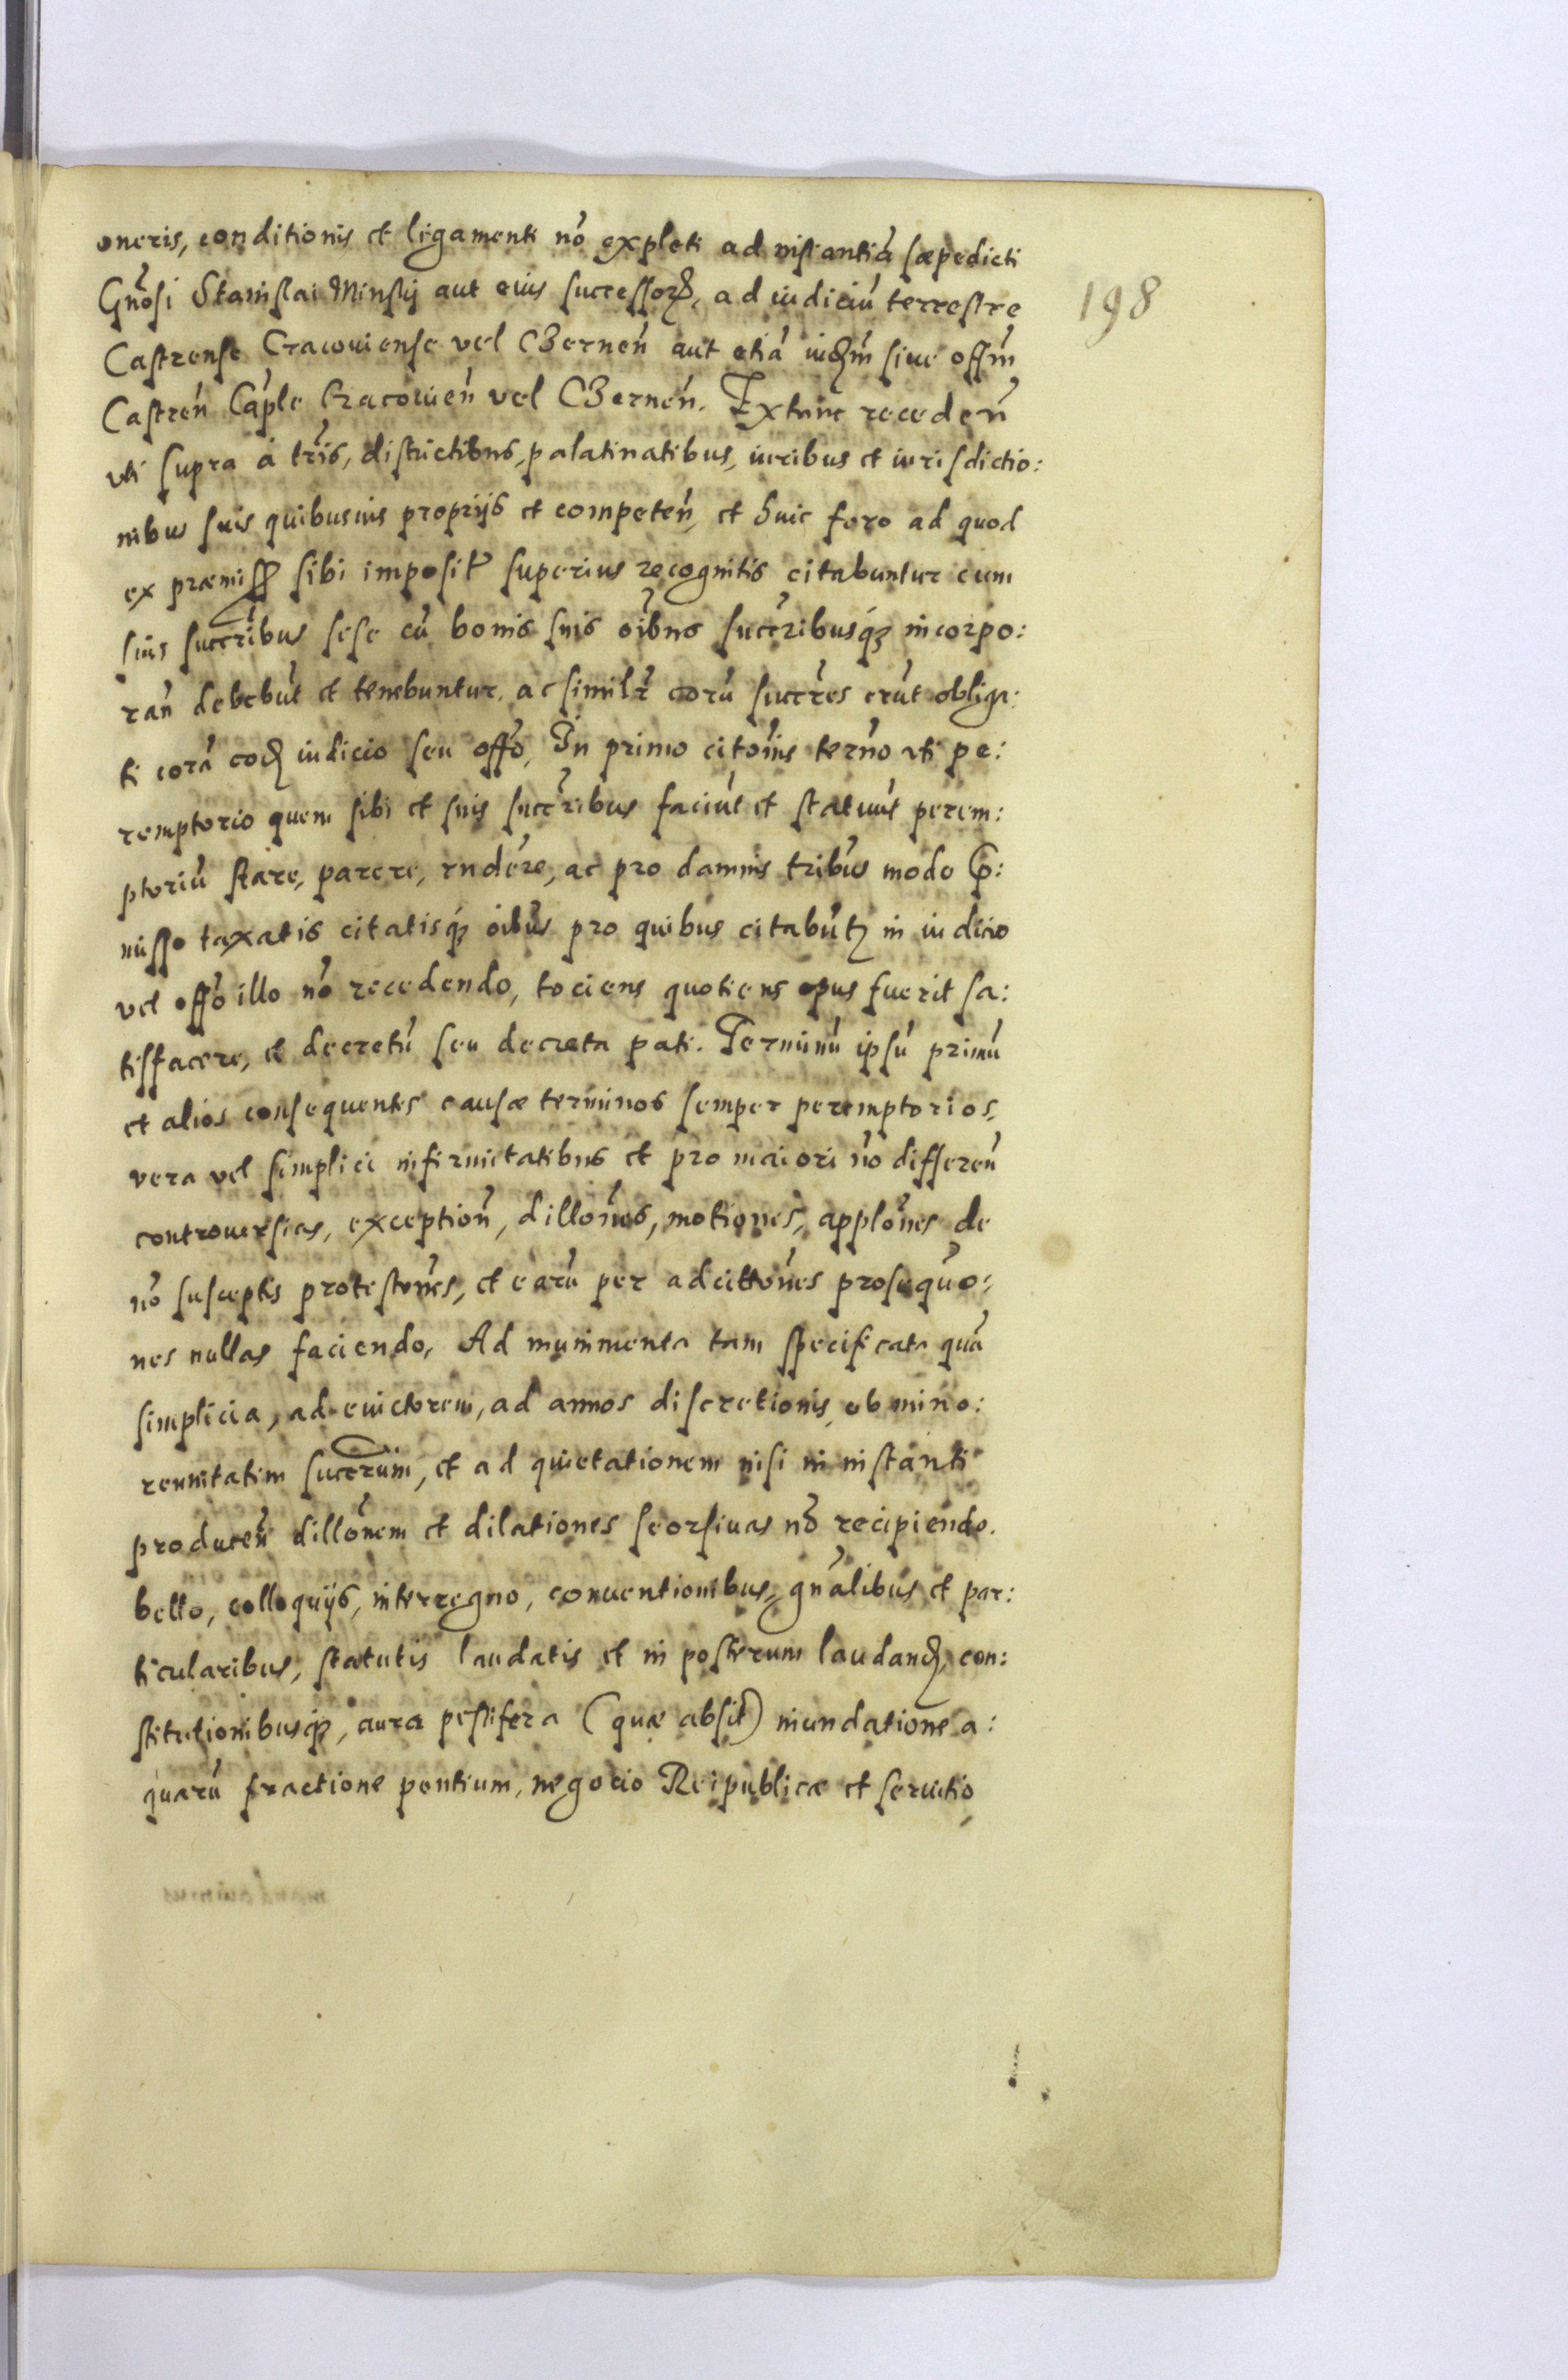 oneris, conditionis et ligamenti nō expleti ad instantiā sæpedicti
Gn̄osi Stanislai Minskij aut eius successorꝝ, ad iudiciū terrestre
198
Castrense Cracouiense vel CZernēn aut etiā iudm̄ siue offm̄
Castrēn Cap̄le Cracouiēn vel CZernēn. Extunc recedēn
vti supra à tr̄is, districtibus, palatinatibus, iuribus et iurisdictio:
nibus suis quibusuis proprijs et competēn, et huic foro ad quod
ex præmiss sibi imposit superius recognitis citabuntur cum
suis succr̄ibus sese cū bonis suis oībus succr̄ibusq́ꝫ incorpo:
rān debebūt et tenebuntur, ac similr̄ eorū succr̄es erūt obliga:
ti corā eod iudicio seu offō, In primo citōnis ter̄no vti pe:
remptorio quem sibi et suis succr̄ibus faciūt et statuūt perem:
ptoriū stare, parere, rn̄dere, ac pro damnis tribus modo p̄:
misso taxatis citatisq́ꝫ oībus pro quibus citabūtꝫ in iudicio
vel offō illo nō recedendo, tociens quotiens opus fuerit sa:
tisfacere, et decretū seu decreta pati. Terminū ipsū primū
et alios consequentes causæ terminos semper peremptorios,
vera vel simplici infirmitatibus et pro maiori nō differēn
controuersias, exceptiōn, dillōnes, motiones, applōnes de
nō susceptis protestōnes, et earū per adcittōnes prosequō:
nes nullas faciendo, Ad munimenta tam specificata quā
simplicia, ad euictorem, ad annos discretionis ob mino:
rennitatem succr̄um, et ad quietationem nisi in instanti
producēn dillōnem et dilationes seorsiuas nō recipiendo.
bello, colloquijs, interregno, conuentionibus, gn̄alibus et par:
ticularibus, statutis laudatis et in posterum laudand, con:
stitutionibusq́ꝫ, aura pestifera (quæ absit) inundatione a:
quarū fractione pontium, negocio Reipublicæ et seruitio